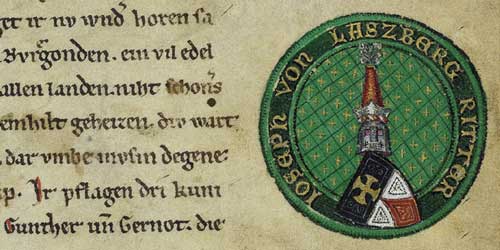 get ir nv wnd͛ horen sa
Bvrgonden. ein vil edel
allen landen. niht schon͛s
geheizen. div wart
dar vmbe mvsin degene
p. Ir pflagen dri kuni
Gunther uñ Gernot. die
IOSEPH VON LASZBERG RITTOR